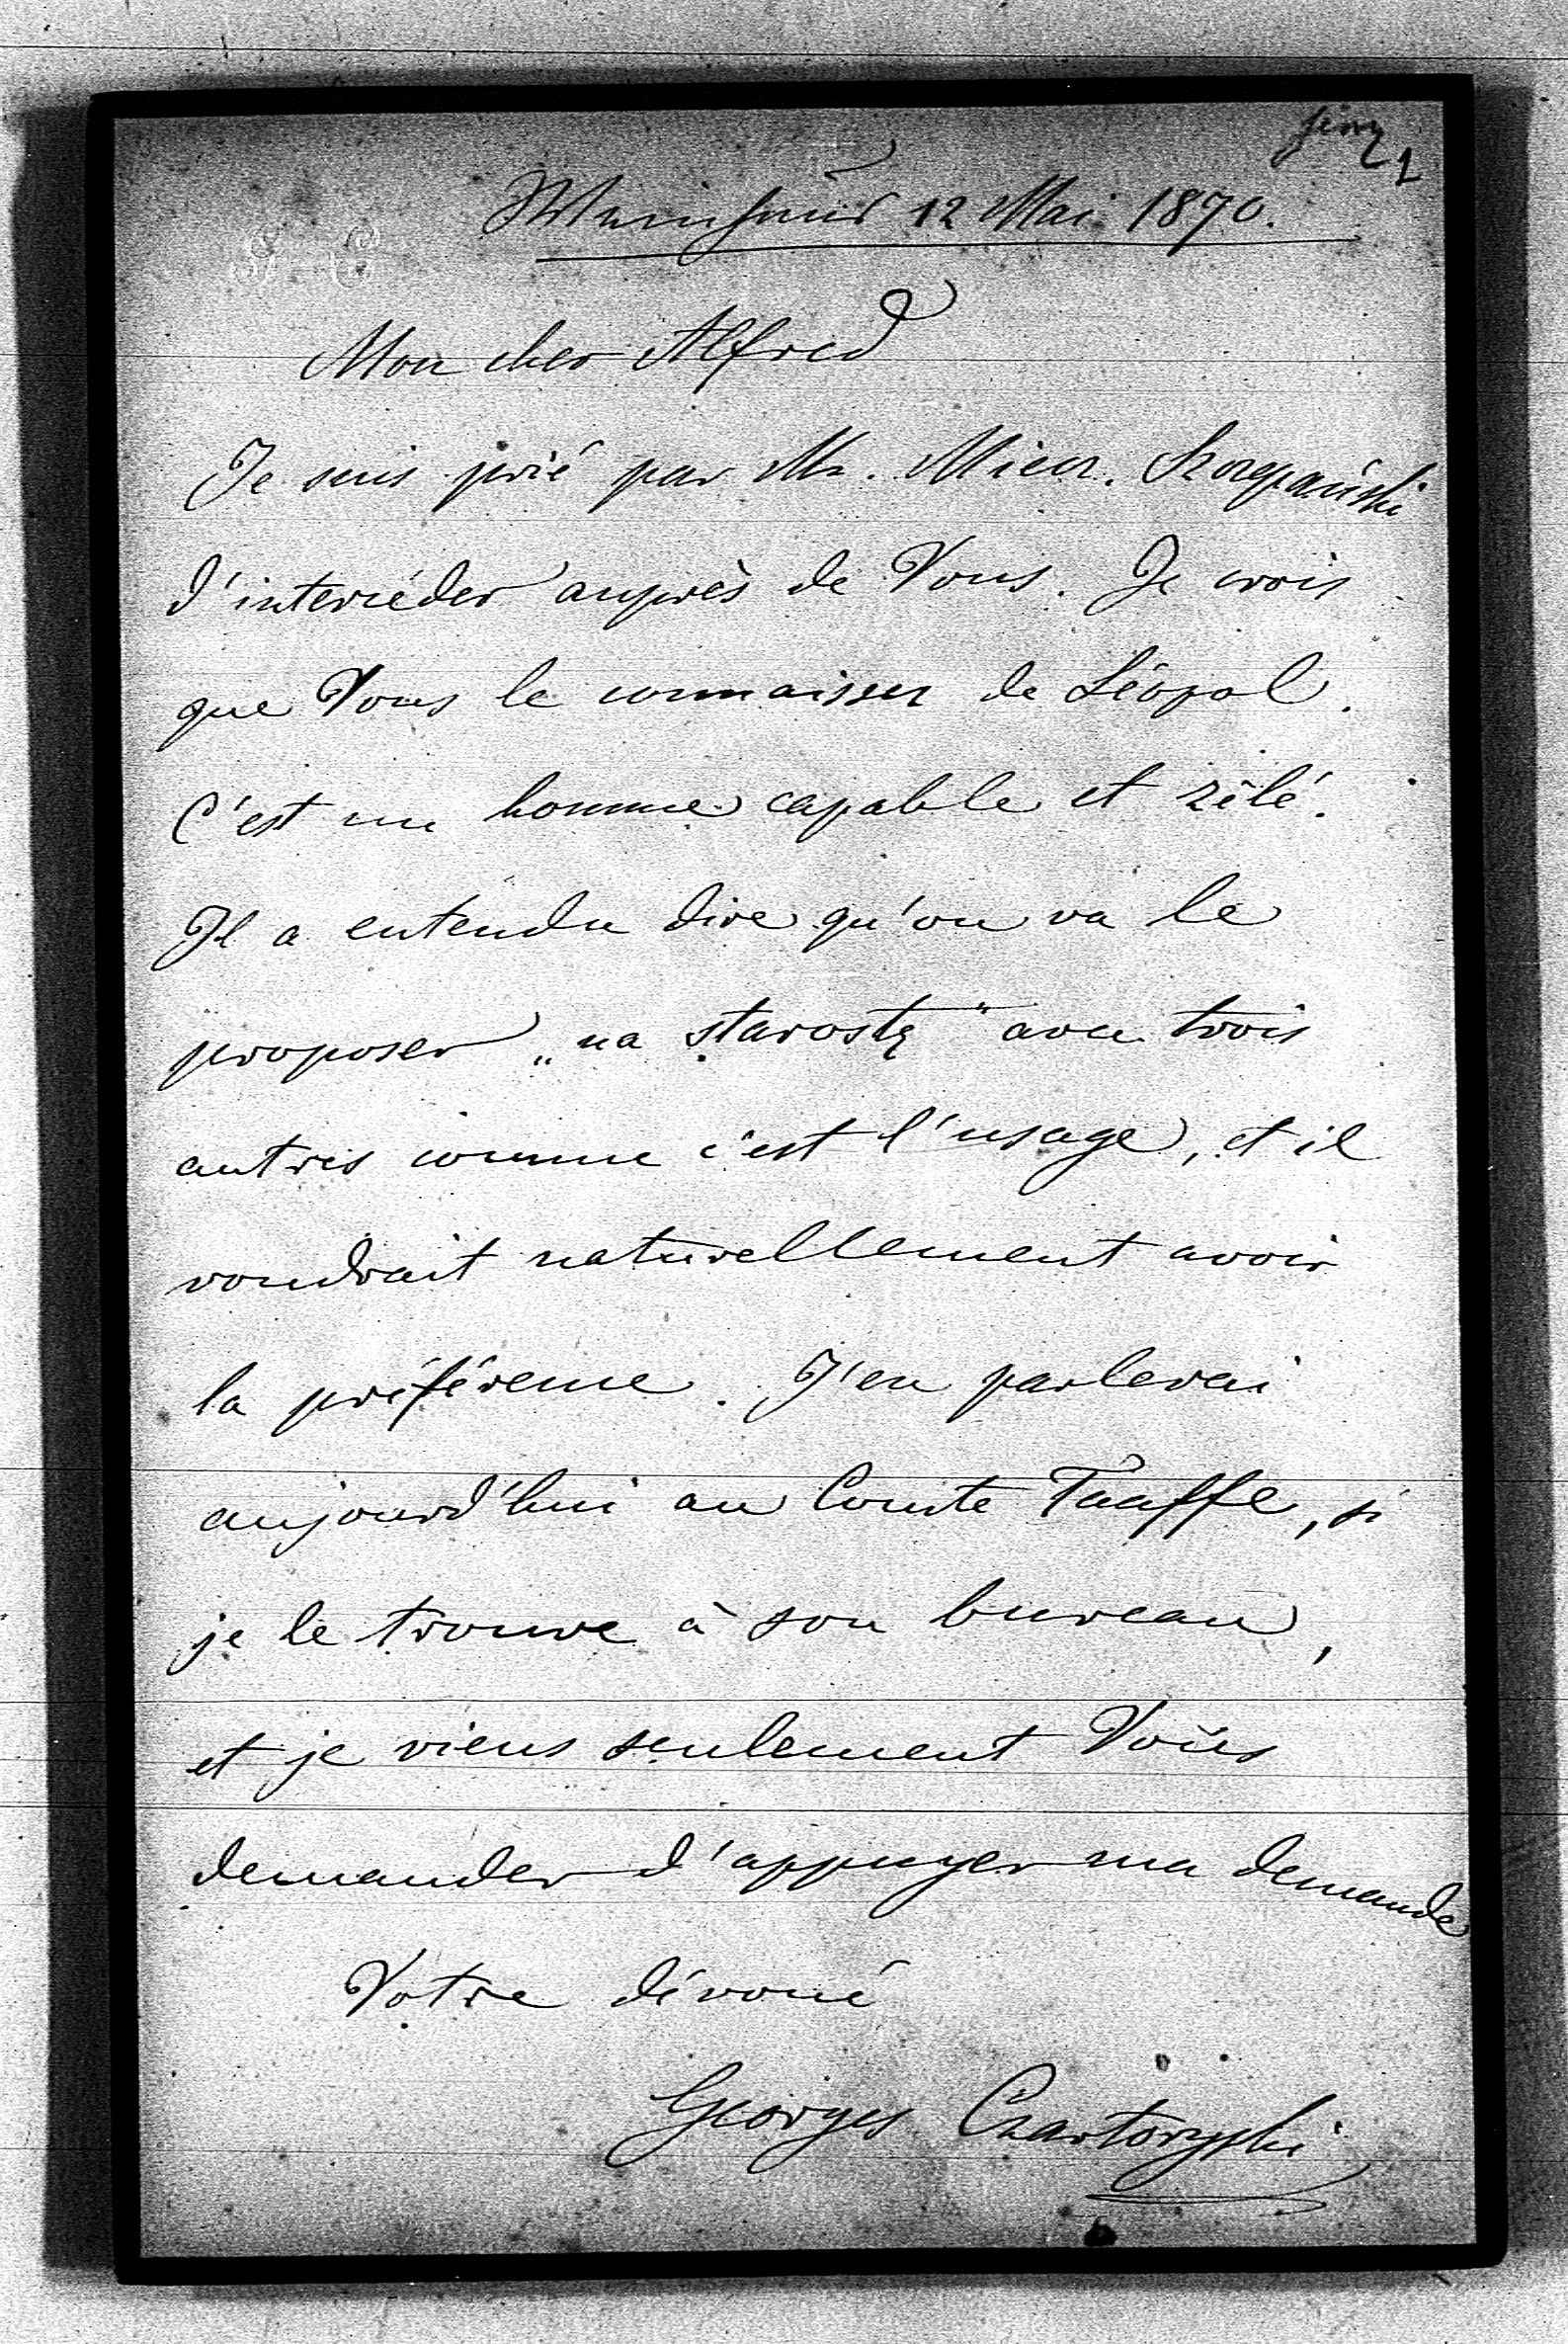 1
Weinhaus 12 Mai 1870.
Mon cher Alfred
Je suis prié par Mr. Miecz. Szczepański
d'intercéder auprès de Vous. Je crois
que Vous le connaissez de Léopol.
C'est un homme capable et zélé.
Il a entendu dire qu'on va le
proposer „na starostę" avec trois
autres comme c'est l'usage, et il
voudrait naturellement avoir
la préférence. J'en parlerai
aujourd'hui au Comte Taaffe, si
je le trouve à son bureau,
et je viens seulement Vous
demander d'appuyer ma demande
Votre dévoué
Georges Czartoryski